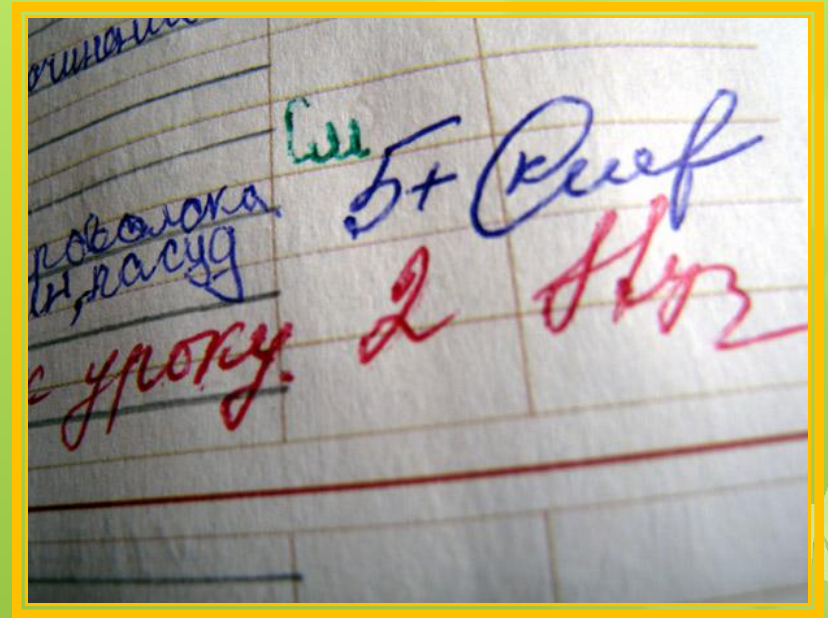 очинани
См
роволока 5+
н, пасуд
с уроку. 2